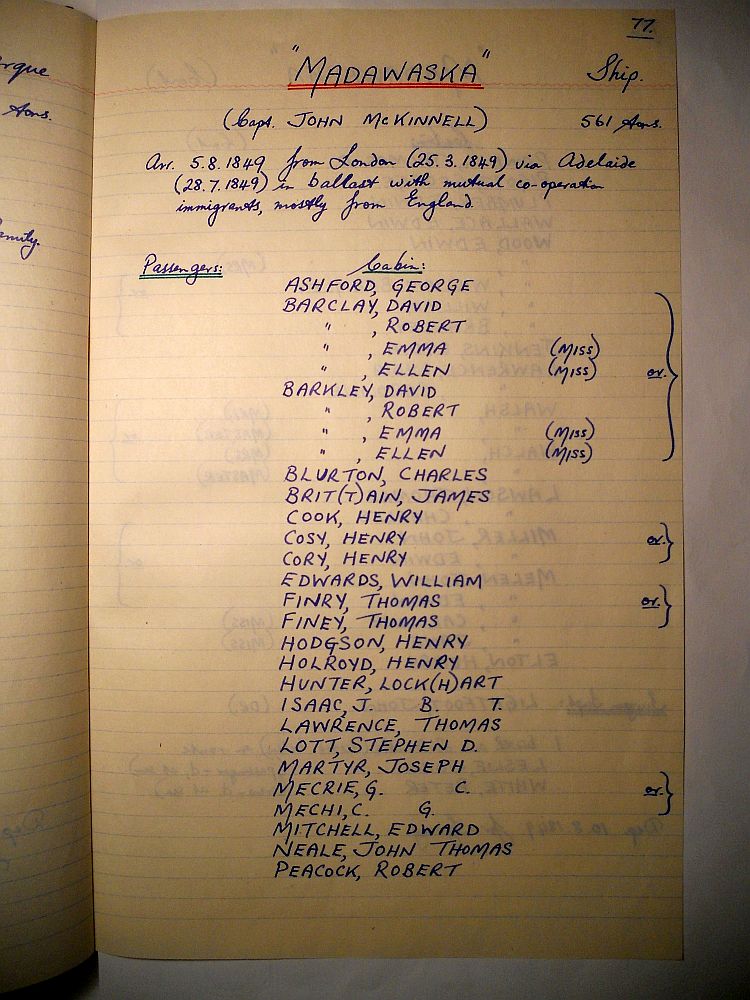 77.
"MADAWASKA" Ship.
(Capt. JOHN McKINNELL) 561 tons.
Arr. 5.8.1849 from London (25.3.1849) via Adelaide
(28.7.1849) in ballast with mutual co-operation
immigrants, mostly from England.
Passengers: Cabin:
ASHFORD, GEORGE
BARCLAY, DAVID
" , ROBERT
" , EMMA (MISS)
" , ELLEN (MISS) or.
BARKLEY, DAVID
" , ROBERT
" , EMMA (MISS)
" , ELLEN (MISS)
BLURTON, CHARLES
BRIT(T)AIN, JAMES
COOK, HENRY
COSY, HENRY or.
CORY, HENRY
EDWARDS, WILLIAM
FINRY, THOMAS or.
FINEY, THOMAS
HODGSON, HENRY
HOLROYD, HENRY
HUNTER, LOCK(H)ART
ISAAC, J. B. T.
LAWRENCE, THOMAS
LOTT, STEPHEN D.
MARTYR, JOSEPH
MECRIE, G. C. or.
MECHI, C. G.
MITCHELL, EDWARD
NEALE, JOHN THOMAS
PEACOCK, ROBERT